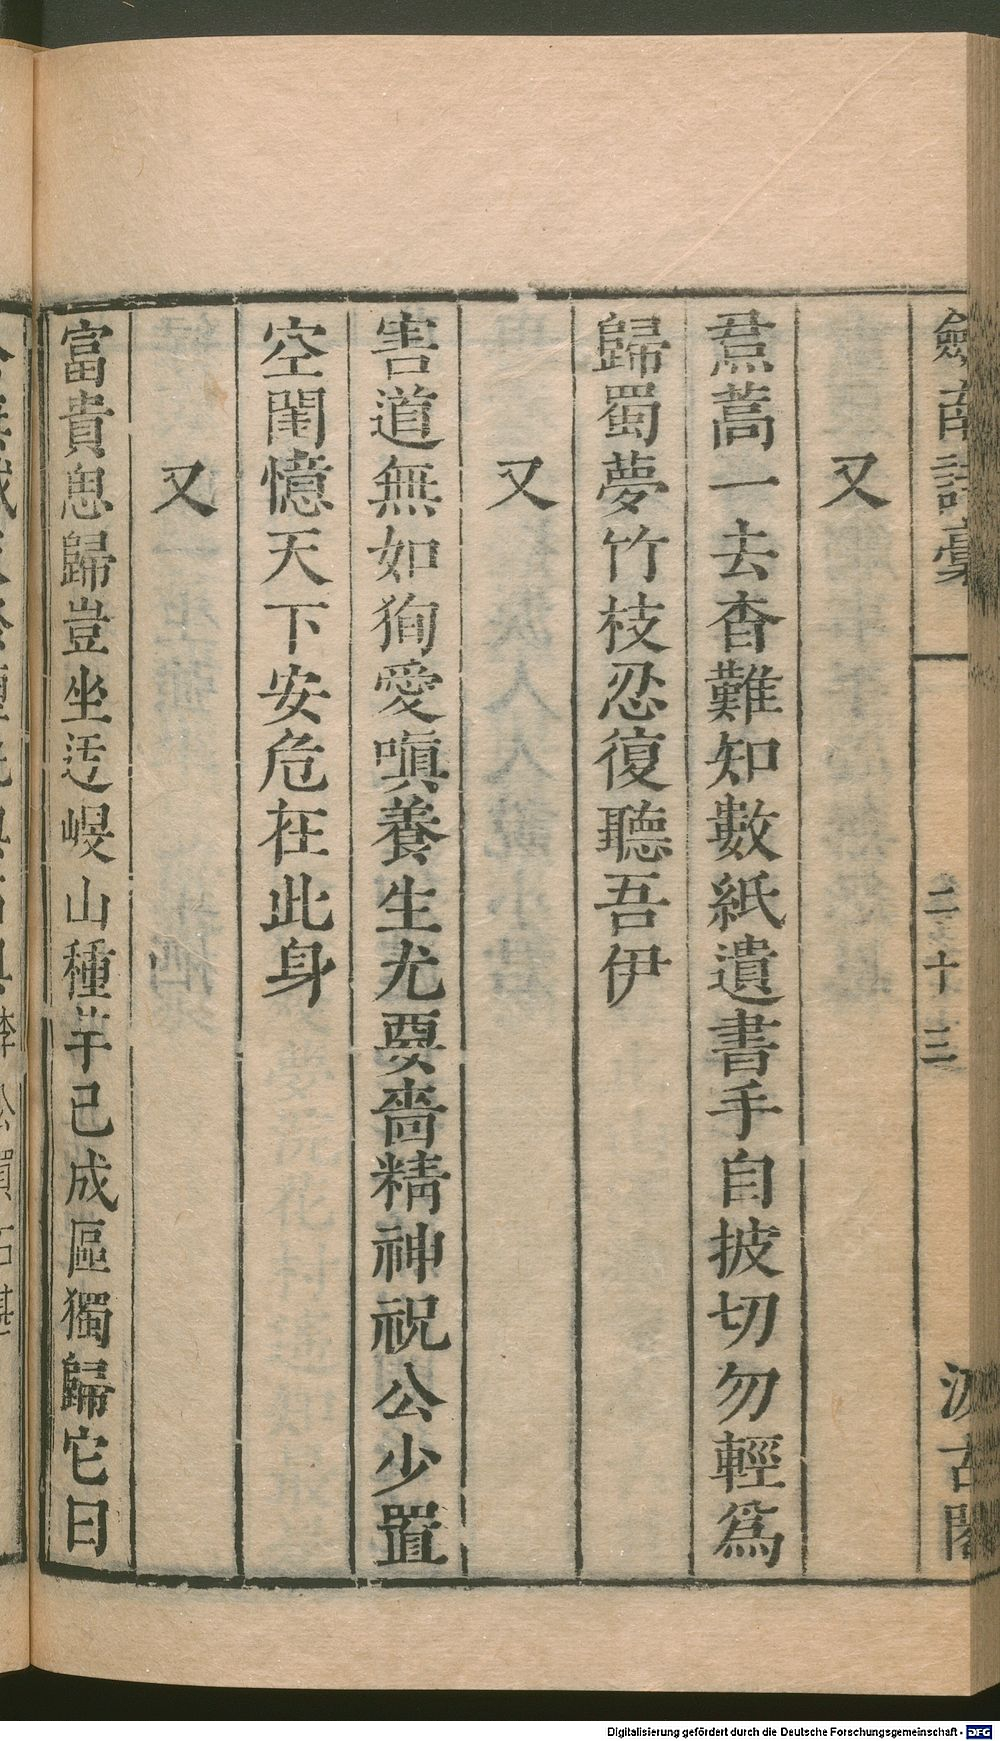 劍南詩稾
二十三
汲古閣
又
焄蒿一去杳難知數紙遺書手自披切勿輕爲
歸蜀夢竹枝忍復聽吾伊
又
害道無如狥愛嗔養生尤要嗇精神祝公少置
空閨憶天下安危在此身
又
富貴思歸豈坐迂峴山種芋已成區獨歸它日
Digitalisierung gefördert durch die Deutsche Forschungsgemeinschaft - DFG